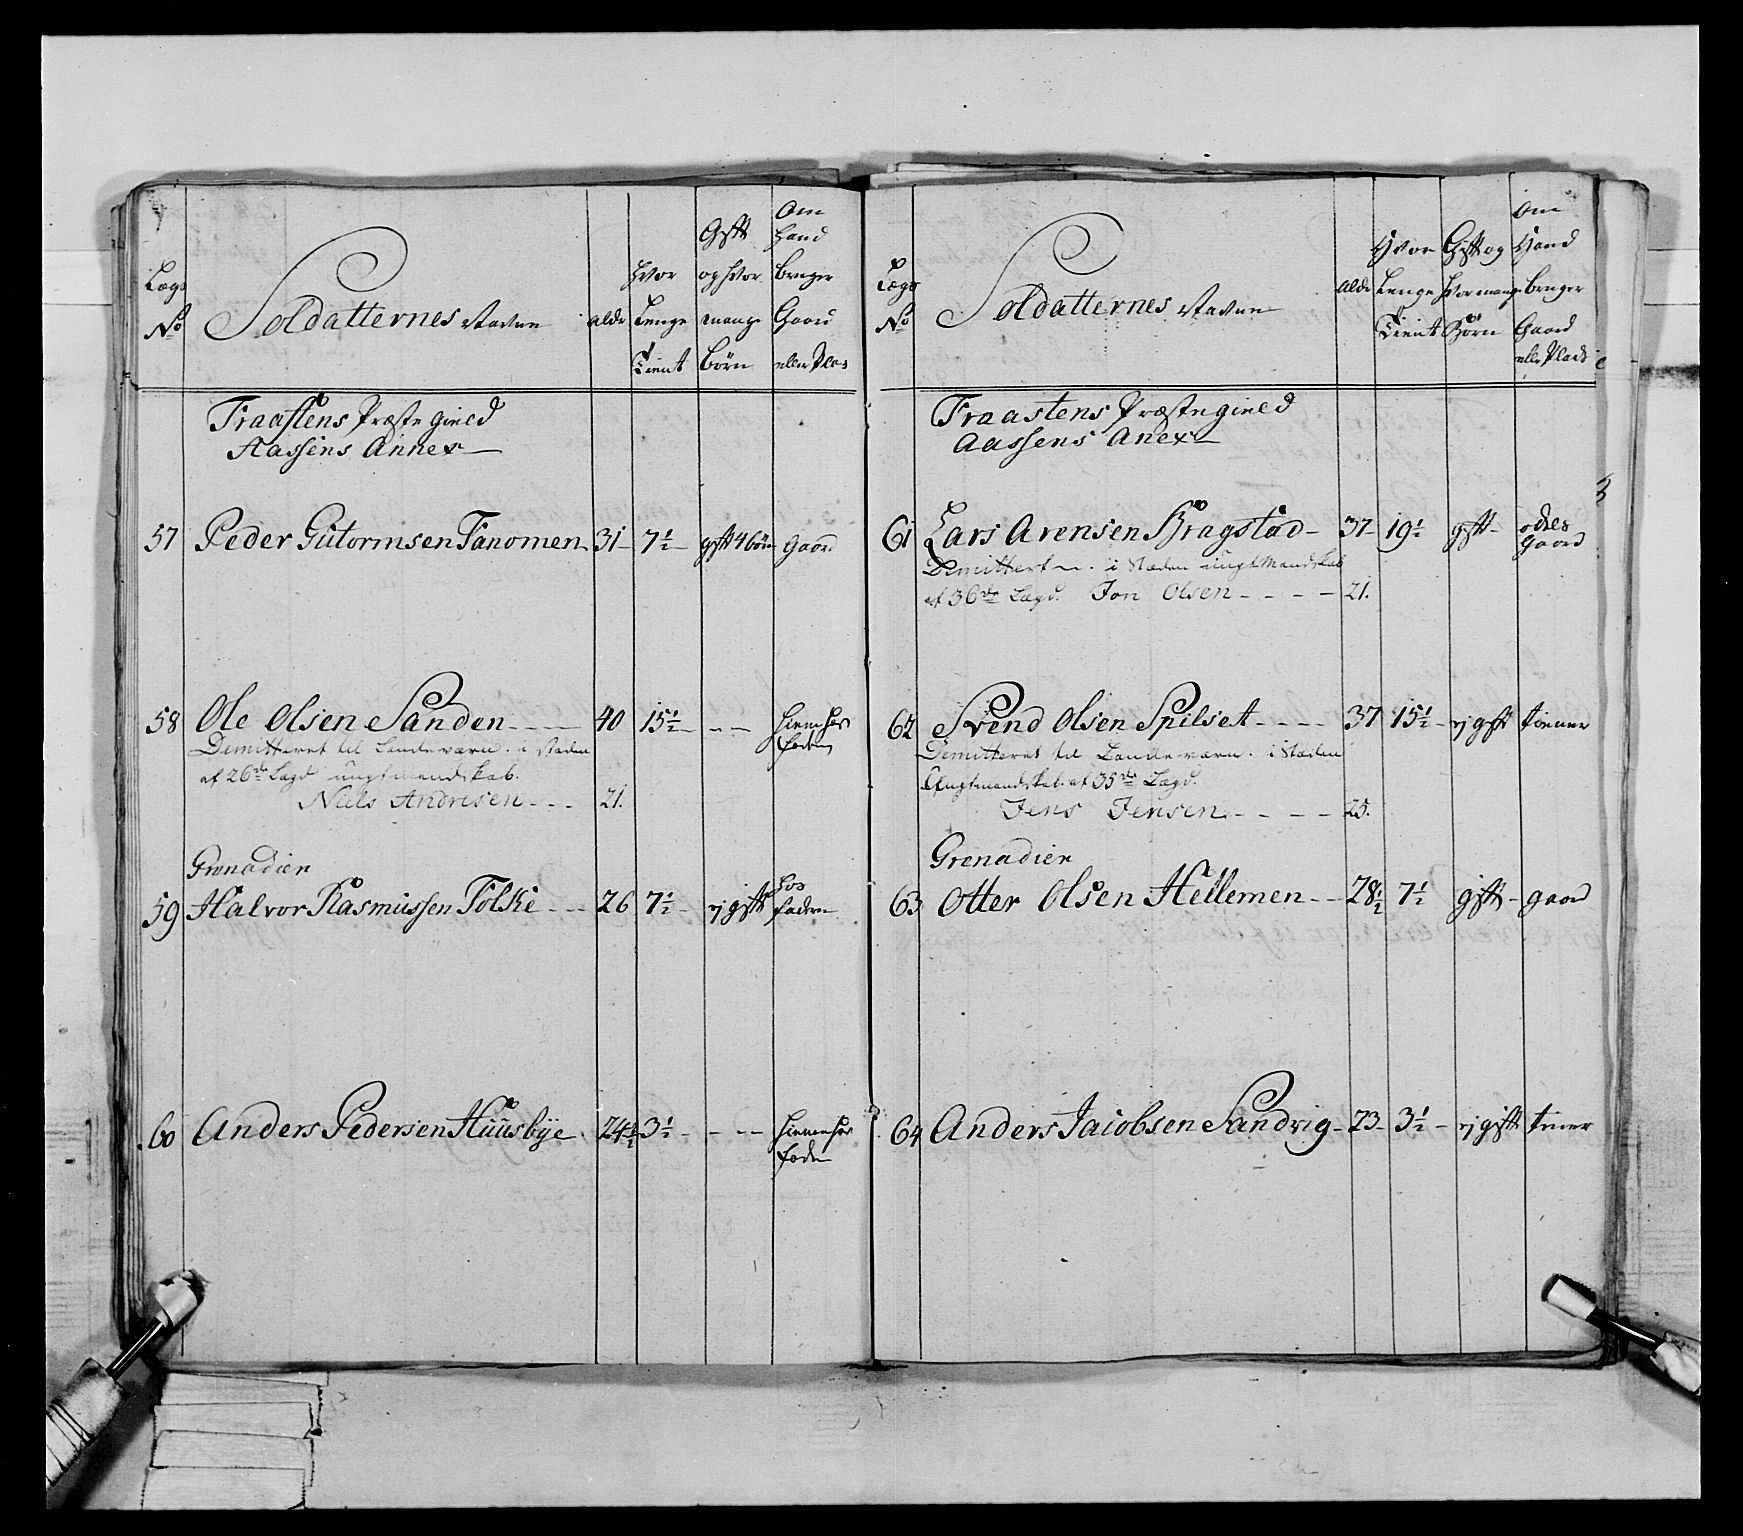 Lægs No
Soldatternes Navne
alder
Hvor Lenge Tient
Gift og hvor mange børn
Om Hand bruger Gaard eller Plas
Fraastens Præste Gield
Aassens Annex
57 Peder Gutormsen Fanomen 31 7½ gift 4 børn gaard
58 Ole Olsen Sanden 40 15½ - - hiemme hos faderen
Demitteret til Landeværn. i steden
af 26de Lægd ungtmandskab.
Niels Andresen 21.
Grenadier
59 Halvor Rasmussen Folke 26 7½ ej gift hos faderen
60 Anders Pedersen Huusbye 24½ 3½ - - hiemme hos fader
Lægs No
Soldatternes Navne
alder
Hvor Lenge Tient
Gift og Hvor mange Børn
Om Hand bruger Gaard eller Plads
Fraastens Præste gield
Aassens Anex
61 Lars Arensen Bragstad 37 19½ gift odels gaard
Demittert i Stæden ungt Mandskab
af 36de Lægd. Jon Olsen 21.
62 Svend Olsen Spilset 37 15½ ej gift tiener
Demitteret til Landeværn. i Stæden
Ungtmandskab af 35de Lægd.
Jens Jensen 25.
Grenadier
63 Otter Olsen Hellemen 28½ 7½ gift gaard
64 Anders Jacobsen Sandvig 23 3½ ej gift tiener